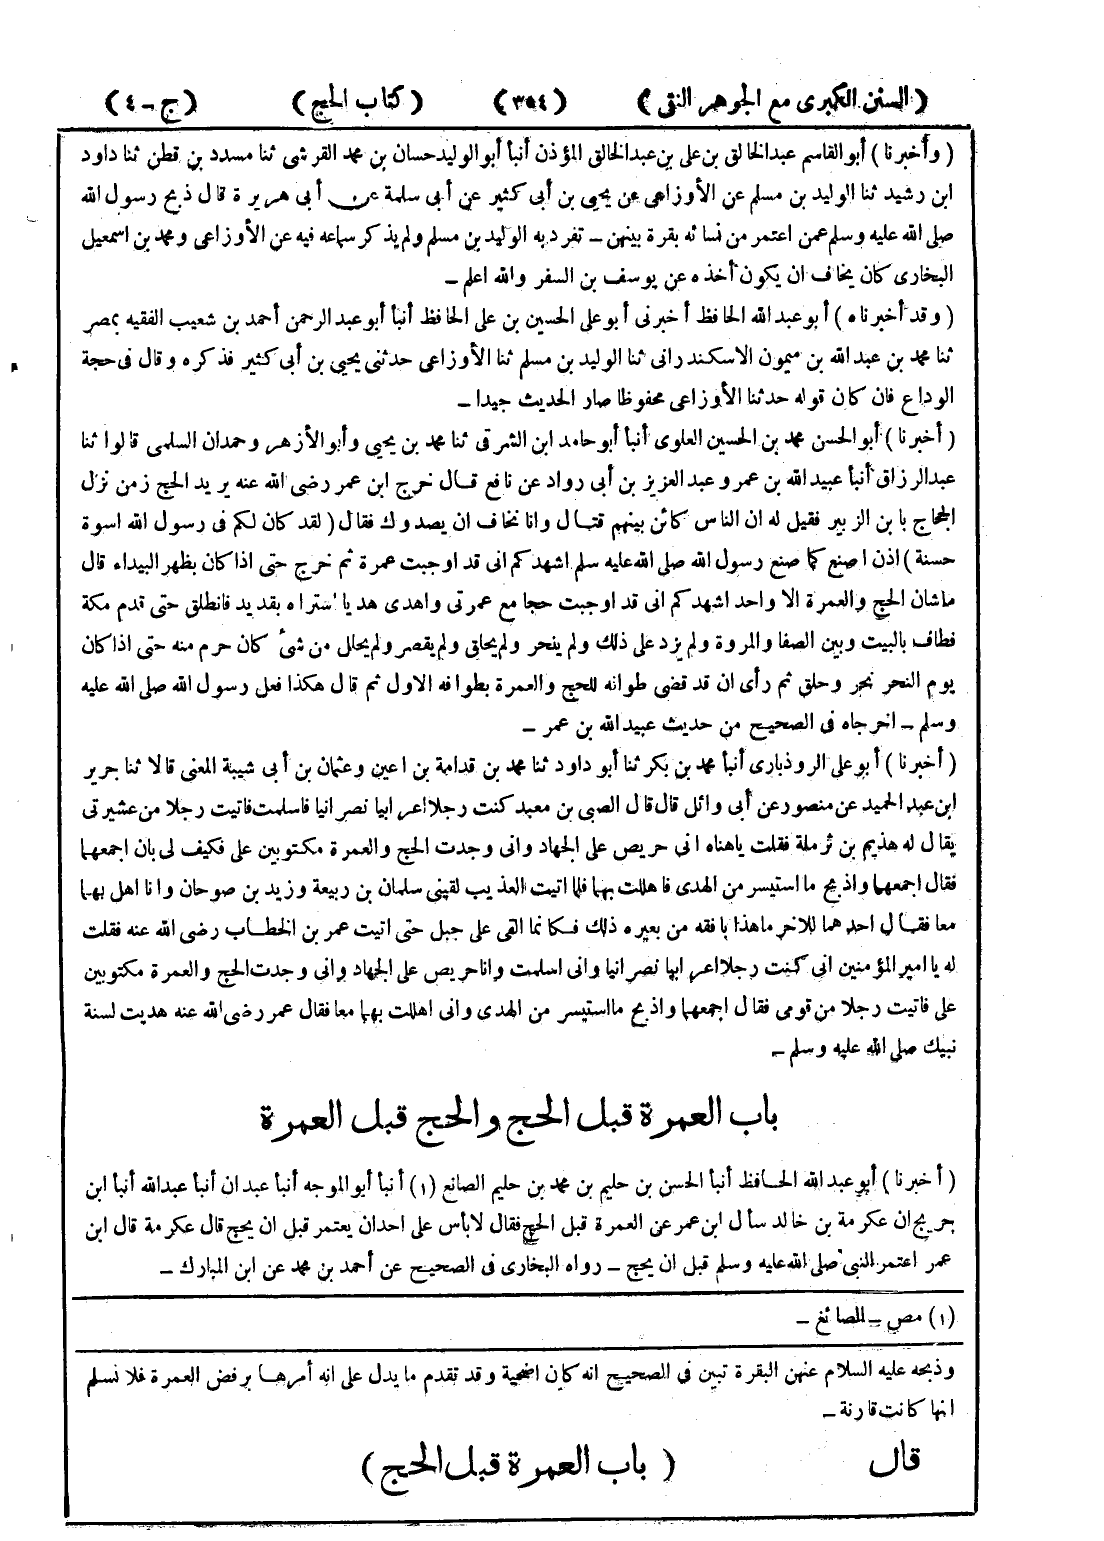 (السنن الكبرى مع الجوهر النقى) (٣٥٤) (كتاب الحج) (ج-٤)
(وأخبرنا) أبو القاسم عبد الخالق بن على بن عبد الخالق المؤذن أنبأ أبو الوليد حسان بن محمد القرشى ثنا مسدد بن قطن ثنا داود
ابن رشيد ثنا الوليد بن مسلم عن الأوزاعى عن يحيى بن أبى كثير عن أبى سلمة عن أبى هريرة قال ذبح رسول الله
صلى الله عليه وسلم عمن اعتمر من نسائه بقرة بينهن ـ تفرد به الوليد بن مسلم ولم يذكر سماعه فيه عن الأوزاعى ومحمد بن اسمعيل
البخارى كان يخاف ان يكون أخذه عن يوسف بن السفر والله اعلم ـ
(وقد أخبرناه) أبو عبد الله الحافظ أخبرنى أبو على الحسين بن على الحافظ أنبأ أبو عبد الرحمن أحمد بن شعيب الفقيه بمصر
ثنا محمد بن عبد الله بن ميمون الاسكندرانى ثنا الوليد بن مسلم ثنا الأوزاعى حدثنى يحيى بن أبى كثير فذكره وقال فى حجة
الوداع فان كان قوله حدثنا الأوزاعى محفوظا صار الحديث جيدا ـ
(أخبرنا) أبو الحسن محمد بن الحسين العلوى أنبأ أبو حامد ابن الشرقى ثنا محمد بن يحيى وأبو الأزهر وحمدان السلمى قالوا ثنا
عبد الرزاق أنبأ عبيد الله بن عمر وعبد العزيز بن أبى رواد عن نافع قال خرج ابن عمر رضى الله عنه يريد الحج زمن نزل
الحجاج بابن الزبير فقيل له ان الناس كائن بينهم قتال وانا نخاف ان يصدوك فقال (لقد كان لكم فى رسول الله اسوة
حسنة) اذن اصنع كما صنع رسول الله صلى الله عليه سلم اشهدكم انى قد اوجبت عمرة ثم خرج حتى اذا كان بظهر البيداء قال
ماشان الحج والعمرة الا واحد اشهدكم انى قد اوجبت حجا مع عمرتى واهدى هديا اشتراه بقديد فانطلق حتى قدم مكة
فطاف بالبيت وبين الصفا والمروة ولم يزد على ذلك ولم ينحر ولم يحلق ولم يقصر ولم يحلل من شئ كان حرم منه حتى اذا كان
يوم النحر نحر وحلق ثم رأى ان قد قضى طوافه للحج والعمرة بطوافه الاول ثم قال هكذا فعل رسول الله صلى الله عليه
وسلم ـ اخرجاه فى الصحيح من حديث عبيد الله بن عمر ـ
(أخبرنا) أبو على الروذبارى أنبأ محمد بن بكر ثنا أبو داود ثنا محمد بن قدامة بن اعين وعثمان بن أبى شيبة المعنى قالا ثنا جرير
ابن عبد الحميد عن منصور عن أبى وائل قال قال الصبى بن معبد كنت رجلا اعرابيا نصرانيا فاسلمت فاتيت رجلا من عشيرتى
يقال له هذيم بن ثرملة فقلت ياهناه انى حريص على الجهاد وانى وجدت الحج والعمرة مكتوبين على فكيف لى بان اجمعهما
فقال اجمعهما واذبح ما استيسر من الهدى فاهللت بهما فلما اتيت العذيب لقينى سلمان بن ربيعة وزيد بن صوحان وانا اهل بهما
معا فقال احدهما للاخر ماهذا بافقه من بعيره ذلك فكانما القى على جبل حتى اتيت عمر بن الخطاب رضى الله عنه فقلت
له يا امير المؤمنين انى كنت رجلا اعرابيا نصرانيا وانى اسلمت وانا حريص على الجهاد وانى وجدت الحج والعمرة مكتوبين
على فاتيت رجلا من قومى فقال اجمعهما واذبح ما استيسر من الهدى وانى اهللت بهما معا فقال عمر رضى الله عنه هديت لسنة
نبيك صلى الله عليه وسلم ـ
باب العمرة قبل الحج والحج قبل العمرة
(أخبرنا) أبو عبد الله الحافظ أنبأ الحسن بن حليم بن محمد بن حليم الصانع (١) أنبأ أبو الموجه أنبأ عبدان أنبأ عبد الله أنبأ ابن
جريج ان عكرمة بن خالد سأل ابن عمر عن العمرة قبل الحج فقال لابأس على احد ان يعتمر قبل ان يحج قال عكرمة قال ابن
عمر اعتمر النبى صلى الله عليه وسلم قبل ان يحج ـ رواه البخارى فى الصحيح عن أحمد بن محمد عن ابن المبارك ـ
(١) مص ـ الصائغ ـ
وذبحه عليه السلام عنهن البقرة تبين فى الصحيح انه كان اضحية وقد تقدم ما يدل على انه أمرها برفض العمرة فلا نسلم
انها كانت قارنة ـ
قال (باب العمرة قبل الحج)